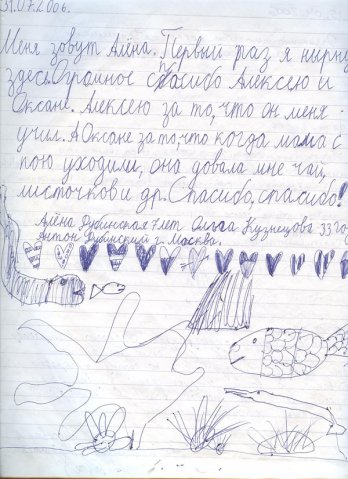 31.07.2006.
Меня зовут Алёна. Первый раз я нырну
здесь. Огромное спасибо Алексею и
Оксане. Алексею за то, что он меня
учил. А Оксане за то, что когда мама с
пою уходили, она довала мне чай,
листочков и др. Спасибо, спасибо!
Алёна Рубинская 7 лет Ольга Кузнецова 33 го
Антон Рубинский г. Москва.